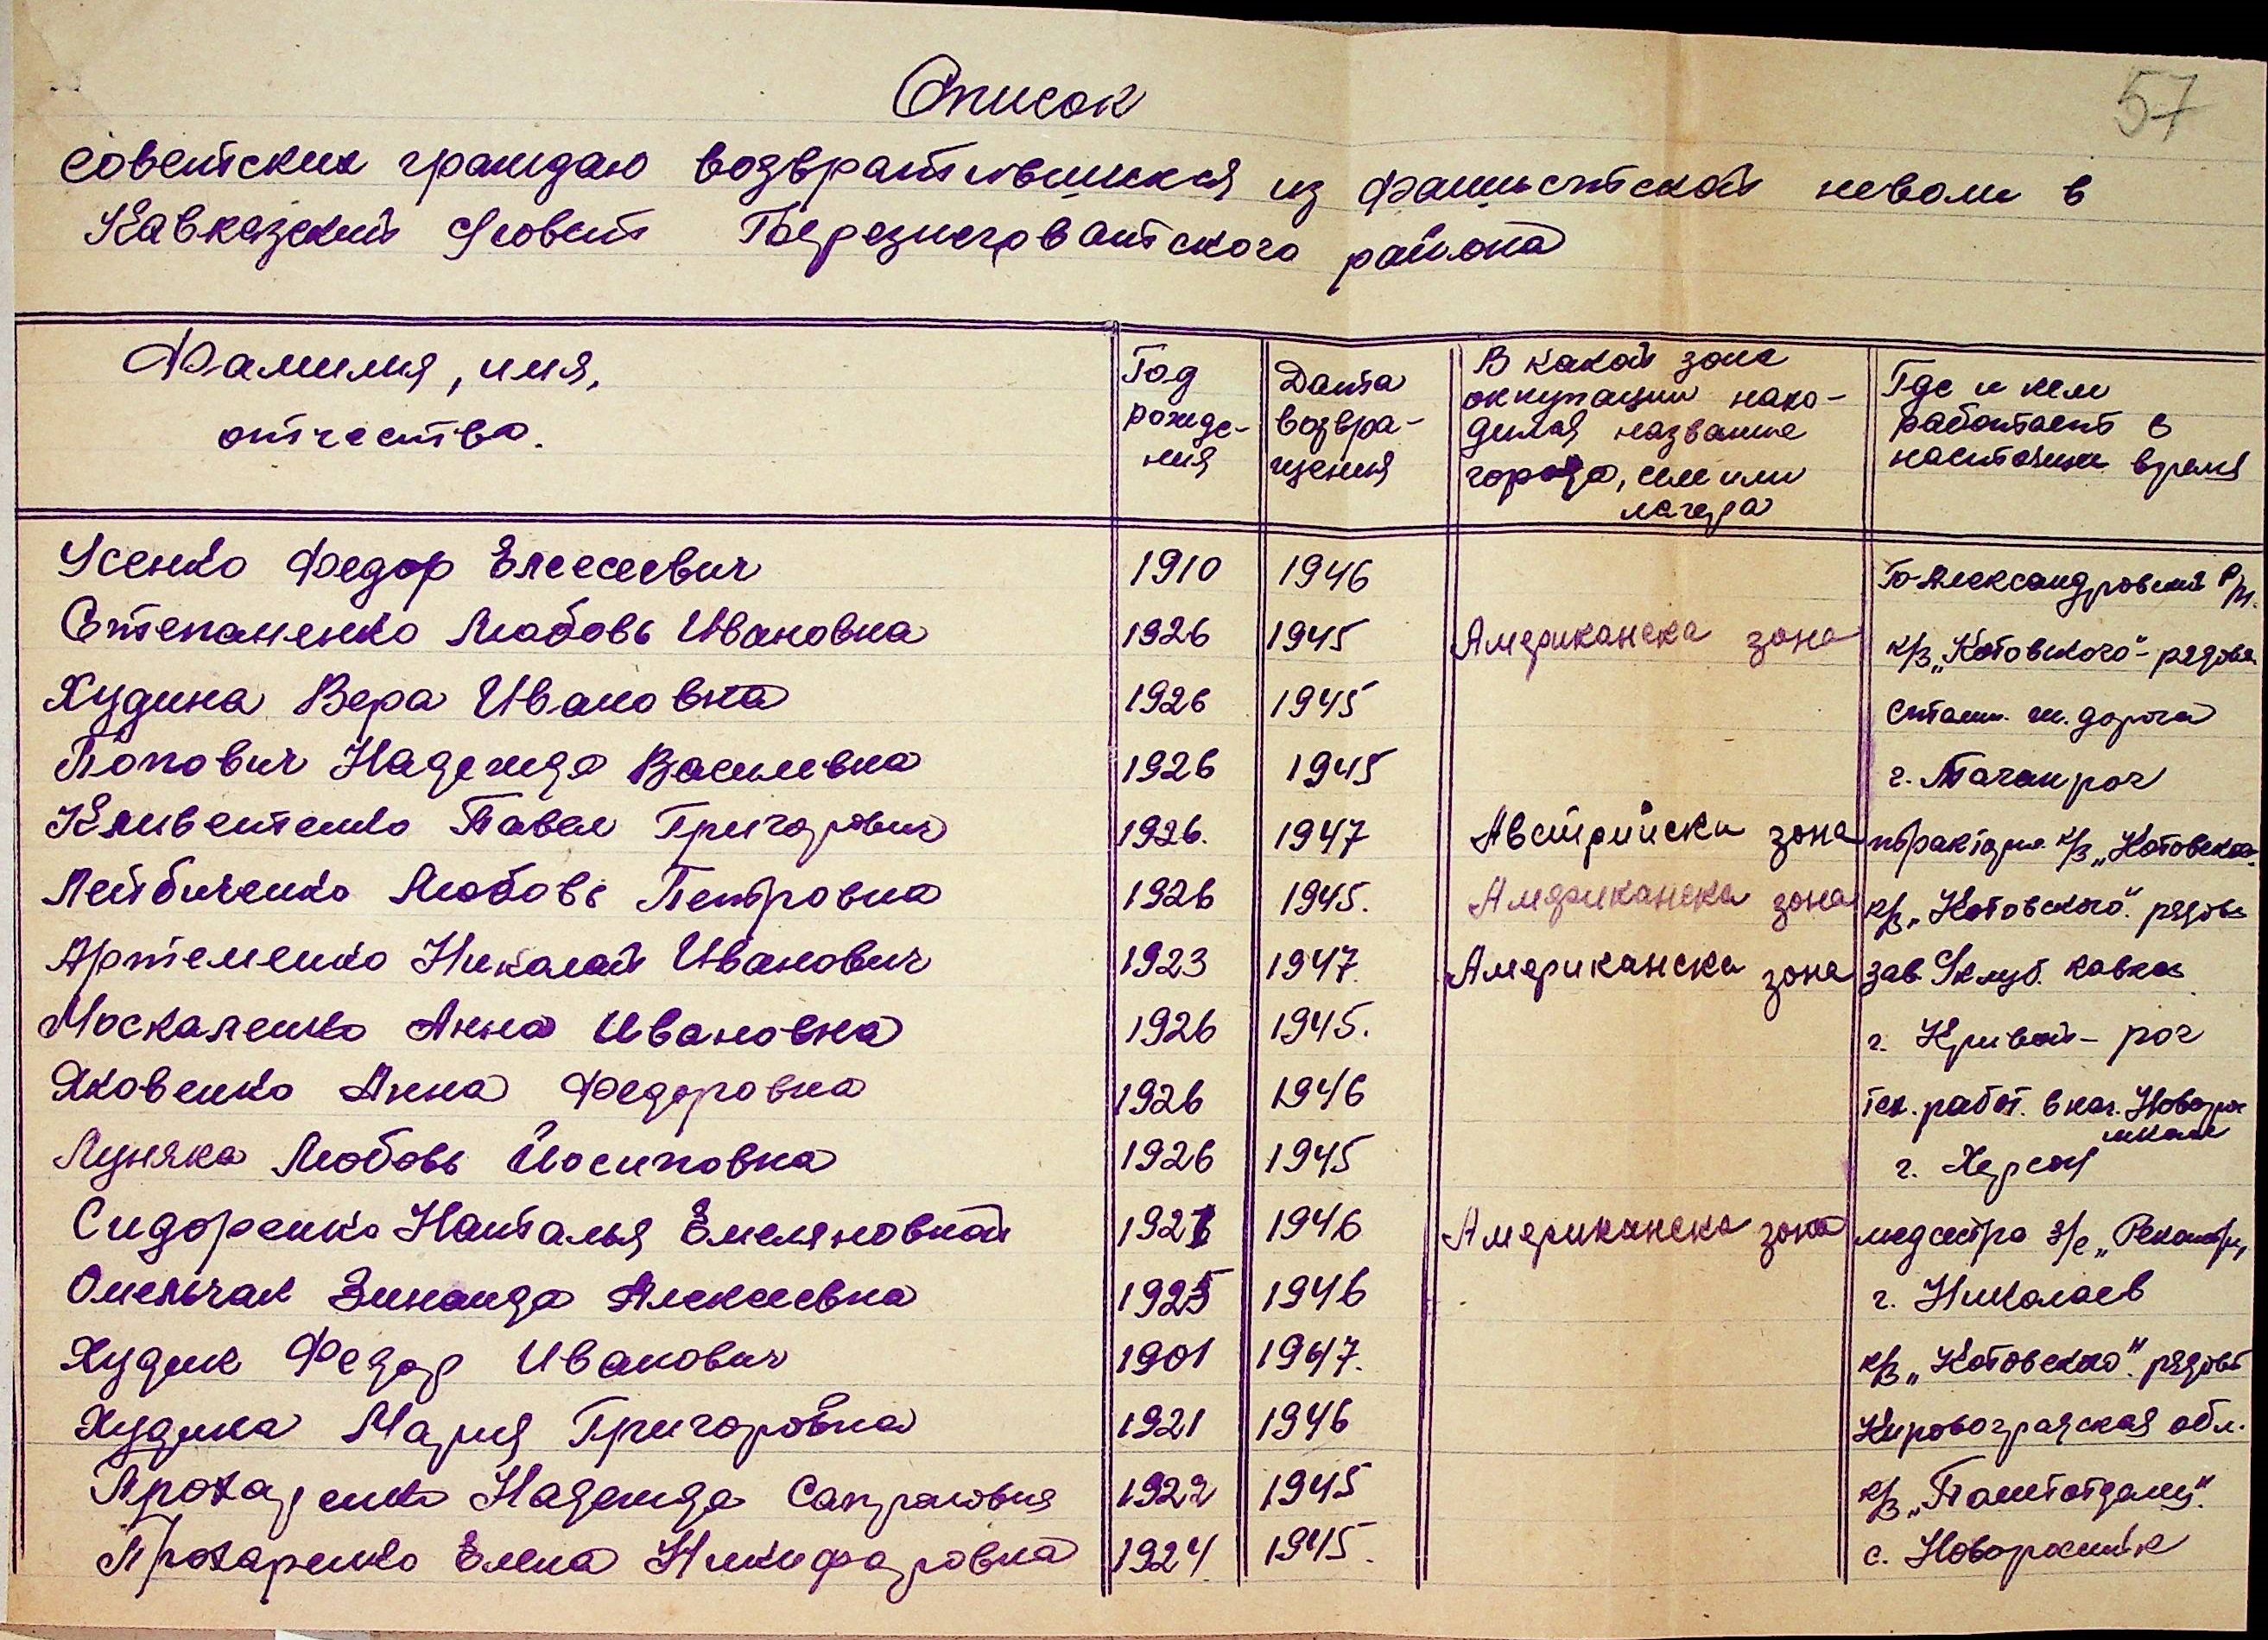 57
Список
советских граждан возвратившихся из фашистской неволи в
Кавказский С/совет Березнеговатского района
Фамилия, имя, отчество. | Год рожде-ния | Дата возвра-щения | В какой зоне оккупации нахо-дился название города, села или лагеря | Где и кем работает в настоящее время
Усенко Федор Елесеевич 1910 1946 Ю-Александровский р/н.
Степаненко Любовь Ивановна 1926 1945 Американска зона к/з „Котовского" - рядовая
Худина Вера Ивановна 1926 1945 станц. ж. дорога
Попович Надежда Василевна 1926 1945 г. Таганрог
Кливентенко Павел Григорович 1926. 1947 Австрийска зона к/з „Котовского".
Лейбиченко Любовь Петровна 1926 1945. Американска зона к/з „Котовского". рядова
Артеменко Николай Иванович 1923 1947. Американска зона зав С/клуб. Кавказ
Москаленко Анна Ивановна 1926 1945. г. Кривой-рог
Яковенко Анна Федоровна 1926 1946 тех. работ. в нач. школе
Луняка Любовь Йосиповна 1926 1945 г. Херсон
Сидоренко Наталья Емеляновной 1926 1946 Американска зона медсестра
Омельчак Зинаида Алексеевна 1925 1946 г. Николаев
Худик Федор Иванович 1901 1947. к/з „Котовского". рядовой
Худика Мария Григоровна 1921 1946 Кировоградская обл.
Прохаренко Надежда 1922 1945 к/з
Прохаренко Елена Никифоровна 1924. 1945. с.